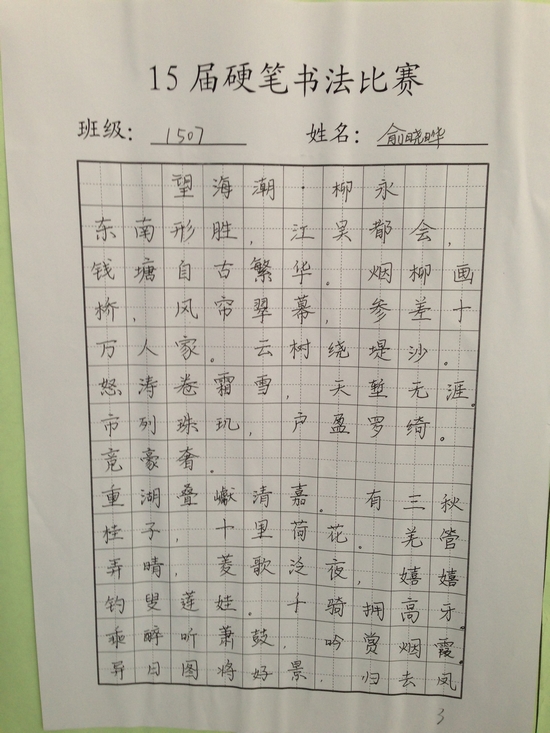 15届硬笔书法比赛
班级： 1507 姓名： 俞晓晔
望海潮·柳永
东南形胜，江吴都会，
钱塘自古繁华。烟柳画
桥，风帘翠幕，参差十
万人家。云树绕堤沙。
怒涛卷霜雪，天堑无涯。
市列珠玑，户盈罗绮。
竞豪奢。
重湖叠巘清嘉。有三秋
桂子，十里荷花。羌管
弄晴，菱歌泛夜，嬉嬉
钓叟莲娃。千骑拥高牙。
乘醉听萧鼓，吟赏烟霞。
异日图将好景，归去凤
3